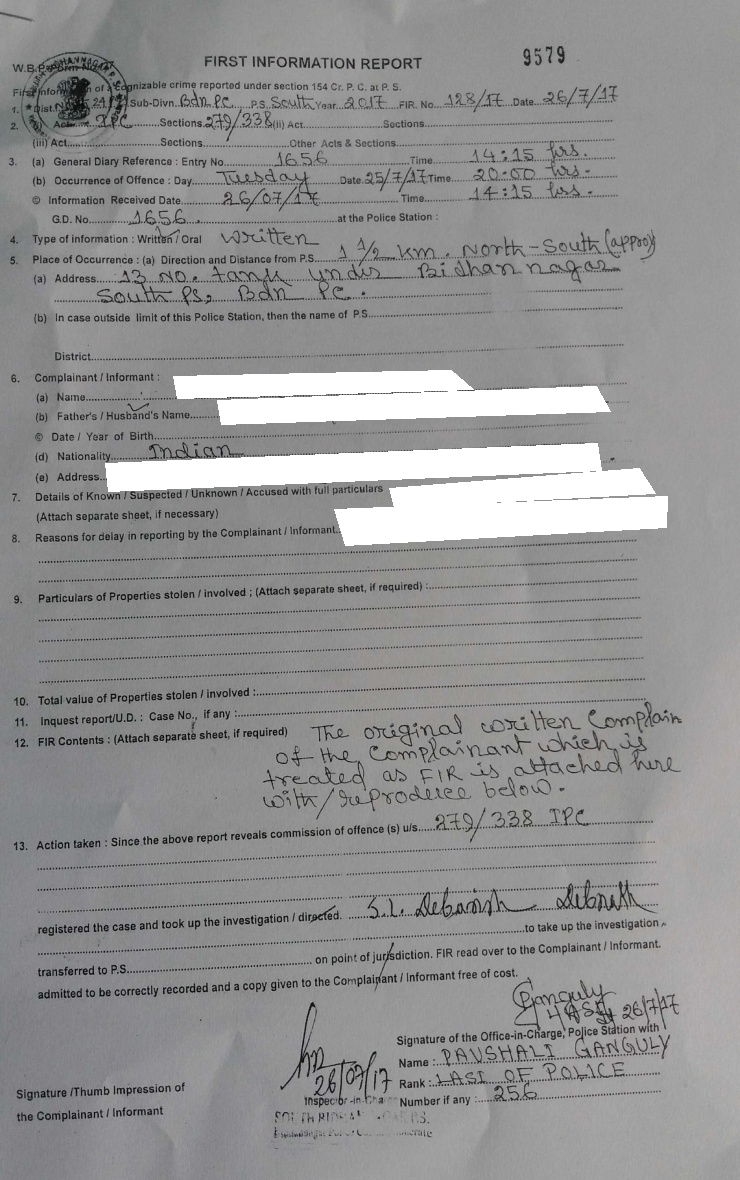 FIRST INFORMATION REPORT 9579
W.B.P.
First Inform of a Cognizable crime reported under section 154 Cr. P. C. at P. S.
1. Dist. Sub-Divn. Bdn PC P.S. South Year 2017 FIR. No. 128/17 Date 26/7/17
2. Act IPC Sections 279/338 (ii) Act Sections
(iii) Act Sections Other Acts & Sections
3. (a) General Diary Reference : Entry No 1656 Time 14:15 hrs.
(b) Occurrence of Offence : Day Tuesday Date 25/7/17 Time 20:00 hrs.
© Information Received Date 26/07/17 Time 14:15 hrs.
G.D. No. 1656 at the Police Station :
4. Type of information : Written / Oral Written
5. Place of Occurrence : (a) Direction and Distance from P.S. 1 1/2 km. North-South (appro)
(a) Address 13 No. tank under Bidhannagar
South PS, Bdn PC.
(b) In case outside limit of this Police Station, then the name of P.S.
District
6. Complainant / Informant :
(a) Name
(b) Father's / Husband's Name
© Date / Year of Birth
(d) Nationality Indian
(e) Address
7. Details of Known / Suspected / Unknown / Accused with full particulars
(Attach separate sheet, if necessary)
8. Reasons for delay in reporting by the Complainant / Informant.
9. Particulars of Properties stolen / involved ; (Attach separate sheet, if required) :
10. Total value of Properties stolen / involved :
11. Inquest report/U.D. : Case No., if any :
12. FIR Contents : (Attach separate sheet, if required) The original written Complain
of the Complainant which is
treated as FIR is attached here
with/reproduce below.
13. Action taken : Since the above report reveals commission of offence (s) u/s. 279/338 IPC
registered the case and took up the investigation / directed. S.I. Debasish Debnath
to take up the investigation
transferred to P.S. on point of jurisdiction. FIR read over to the Complainant / Informant.
admitted to be correctly recorded and a copy given to the Complainant / Informant free of cost.
PGanguly
LASI 26/7/17
Signature of the Office-in-Charge, Police Station with
26/07/17 Name : PAUSHALI GANGULY
Inspector-in-Cha Rank : LASI OF POLICE
Signature /Thumb Impression of Number if any : 256
the Complainant / Informant